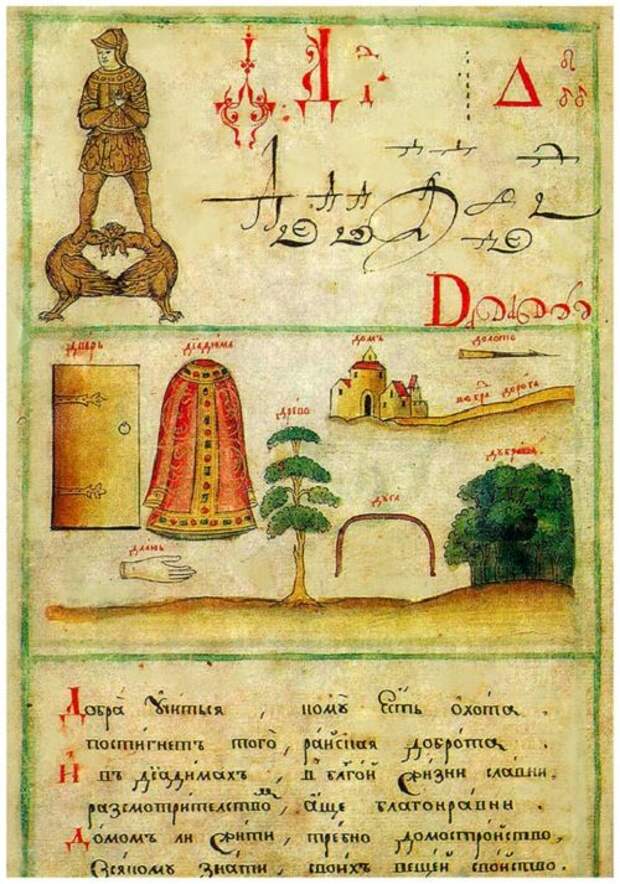 Д Д Д Δ
дверь дїадима домъ долото
добра дорога
древо дꙋбрава
дуга
длань
Добра Учиться , комꙋ Есть охота .
постигнетъ того , райская доброта .
И въ дїадимахъ , в бл҃гой жизни славни .
разсмотрителство , аще благонравни .
Домомъ ли жити , требно домостройство ,
Всякому знати , своихъ вещей свойство .